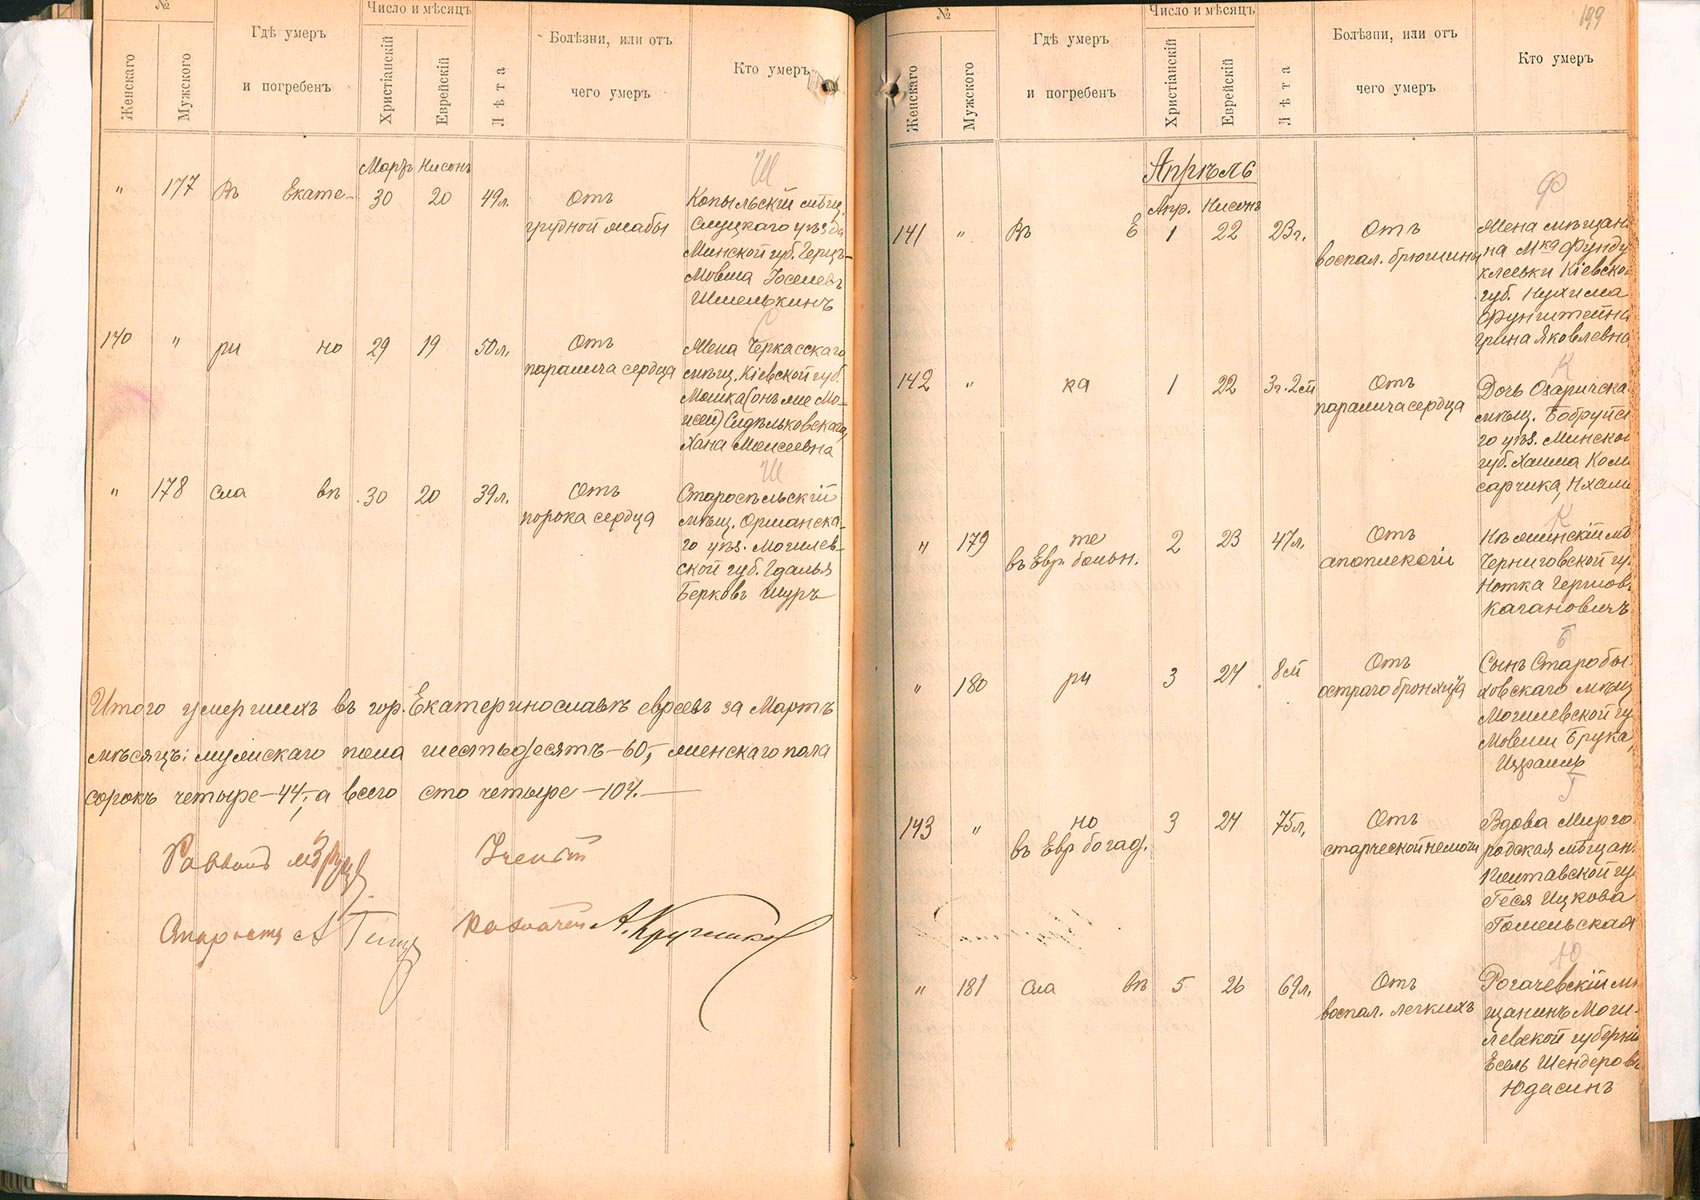 №
Женскаго
Мужского
Гдѣ умеръ
и погребенъ
Число и мѣсяцъ
Христіанскій
Еврейскій
Лѣта
Болѣзни, или отъ
чего умеръ
Кто умеръ
Мартъ Нисонъ
Ш
" 177 Въ Екате- 30 20 49 л.
Отъ
грудной жабы
Копыльскій мѣщ.
Слуцкаго уѣзда
Минской губ. Герцъ-
Мовша Іоселевъ
Шмелькинъ
С
140 " ри но 29 19 50 л.
Отъ
паралича сердца
Жена Черкасскаго
мѣщ. Кіевской губ.
Мошка (онъ же Мо-
исей) Сидѣльковскаго,
Хана Моисеевна
Ш
" 178 сла вѣ 30 20 39 л.
Отъ
порока сердца
Старосельскій
мѣщ. Оршанска-
го уѣз. Могилев-
ской губ. Гдалья
Берковъ Шуръ
Итого умершихъ въ гор. Екатеринославѣ евреевъ за Мартъ
мѣсяцъ: мужскаго пола шестьдесятъ - 60, женскаго пола
сорокъ четыре - 44, а всего сто четыре - 104. -
Раввинъ
Ученый
Староста
Казначей А. Кругликов
199
№
Женскаго
Мужского
Гдѣ умеръ
и погребенъ
Число и мѣсяцъ
Христіанскій
Еврейскій
Лѣта
Болѣзни, или отъ
чего умеръ
Кто умеръ
Апрѣль
Апр. Нисонъ
Ф
141 " Въ Е 1 22 23 г.
Отъ
воспал. брюшины
Жена мѣщан
на Мка Фунду
клеевки Кіевской
губ. Нухима
Фунштейна
Грина Яковлевна
К
142 " ка 1 22 3 г. 2 м
Отъ
паралича сердца
Дочь Озаричска
мѣщ. Бобруйс
го уѣз. Минской
губ. Хаима Ком
сарчика, Нхам
К
" 179 те 2 23 47 л.
въ Евр. больн.
Отъ
апоплексіи
Клѣминскій мѣ
Черниговской гу
Нотка Гершовъ
Кагановичъ
Б
" 180 ри 3 24 8 м
Отъ
остраго бронхита
Сынъ Старобы
ховскаго мѣщ
Могилевской гу
Мовши Брука,
Израиль
Г
143 " но 3 24 75 л.
въ Евр. богад.
Отъ
старческой немощи
Вдова Мирго
родская мѣщан
Полтавской гу
Геся Ицкова
Гомельская
Ю
" 181 сла вѣ 5 26 69 л.
Отъ
воспал. легкихъ
Рогачевскій мѣ
щанинъ Моги-
левской губерніи
Есель Шендеровъ
Юдасинъ